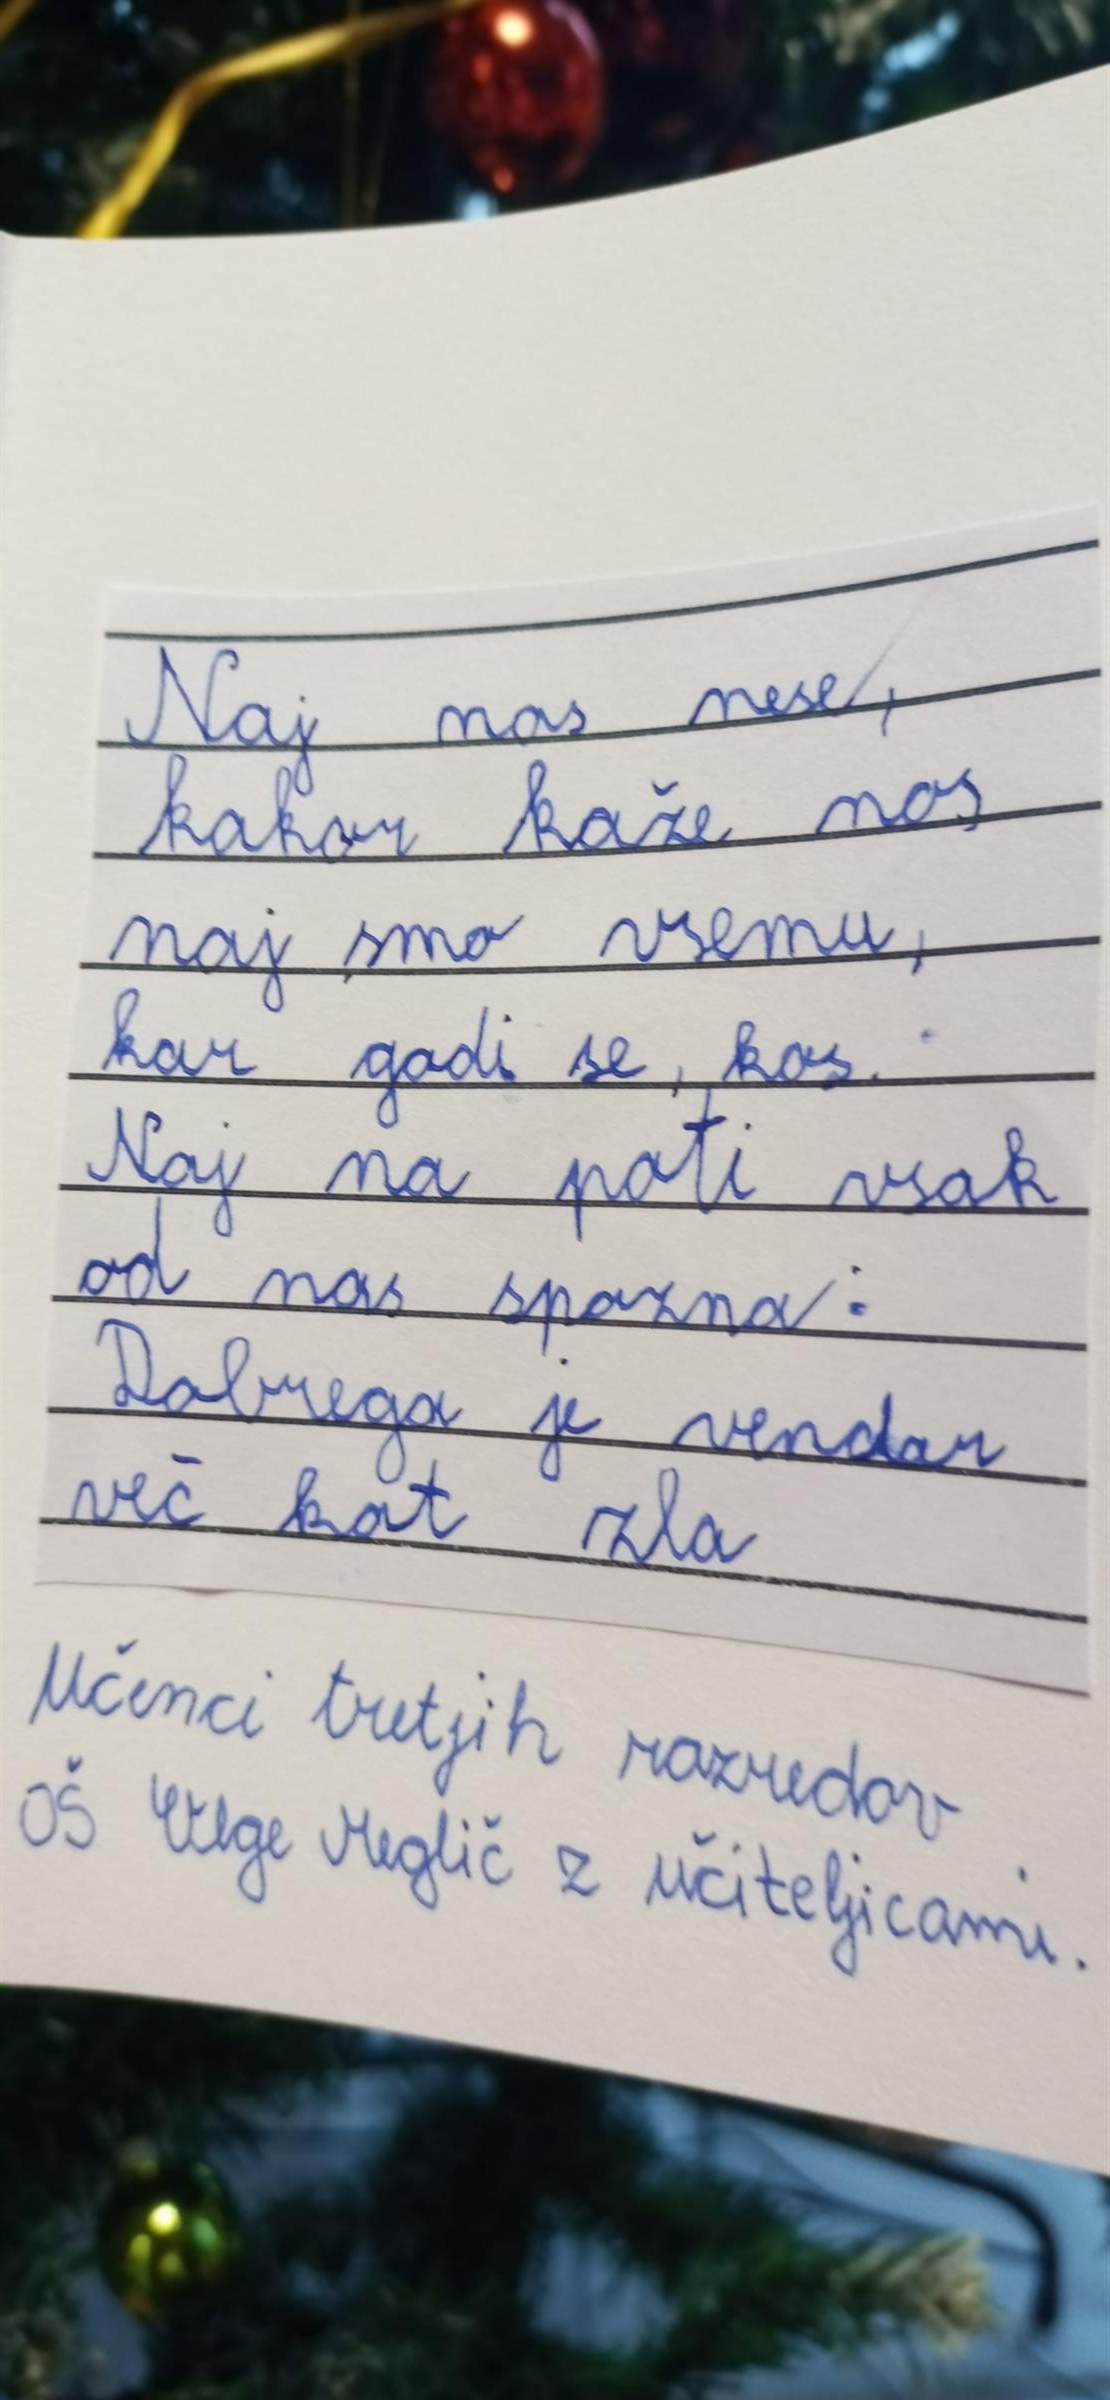 Naj nas nese,
kakor kaže nos
naj smo vsemu,
kar godi se, kos.
Naj na poti vsak
od nas spozna:
Dobrega je vendar
več kot zla
Učenci tretjih razredov
OŠ Helge Meglič z učiteljicami.